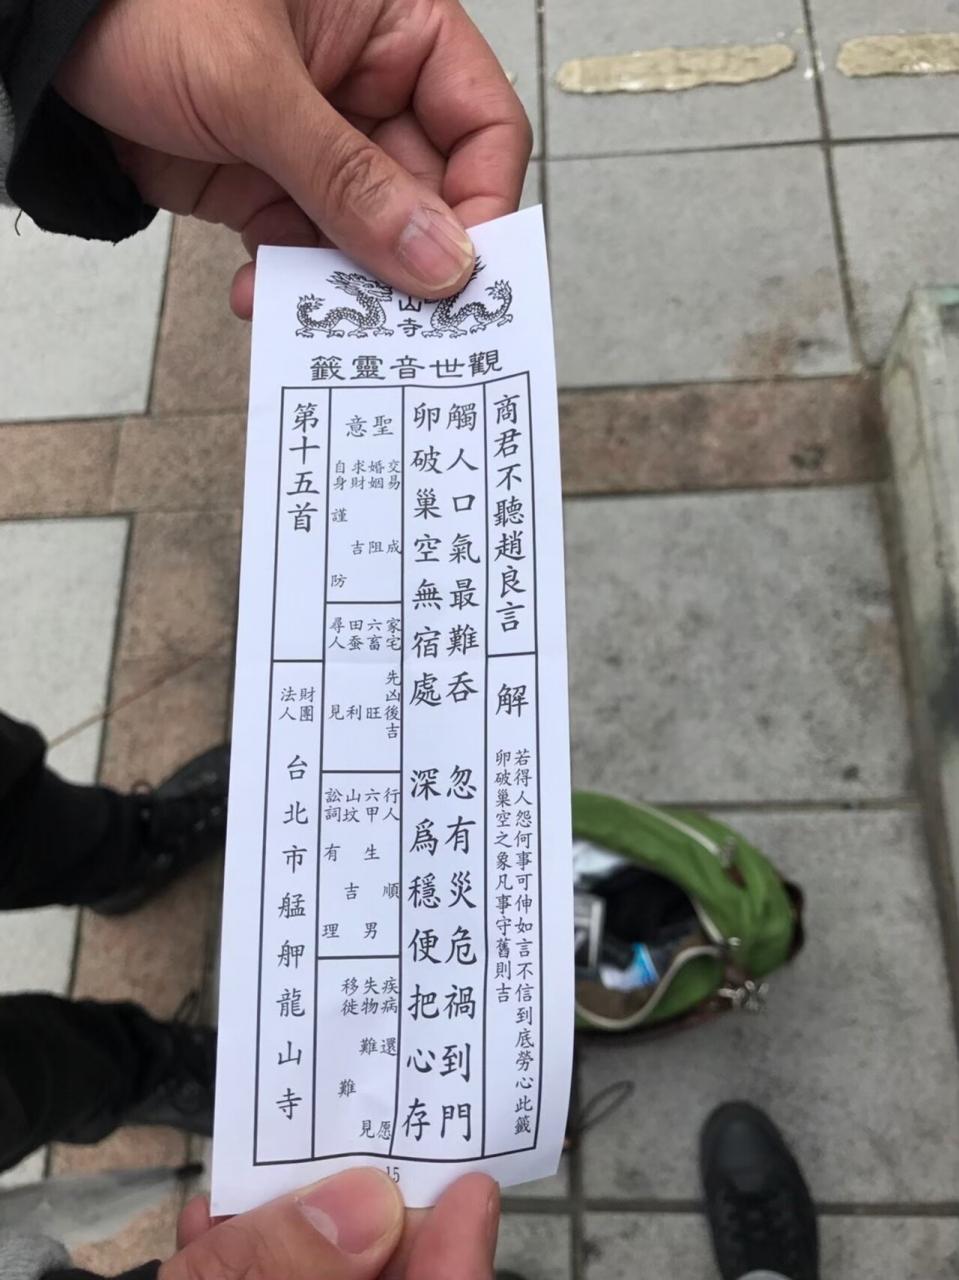 山寺
觀世音靈籤
商君不聽趙良言
解
若得人怨何事可伸如言不信到底勞心此籤
卵破巢空之象凡事守舊則吉
觸人口氣最難吞 忽有災危禍到門
卵破巢空無宿處 深爲穩便把心存
聖意
交易 成
婚姻 阻
求財 吉
自身 謹防
家宅 先凶後吉
六畜 旺
田蚕 利
尋人 見
行人 順
六甲 生男
山坟 吉
訟詞 有理
疾病 還愿
失物 難見
移徙 難
第十五首
財團法人
台北市艋舺龍山寺
15